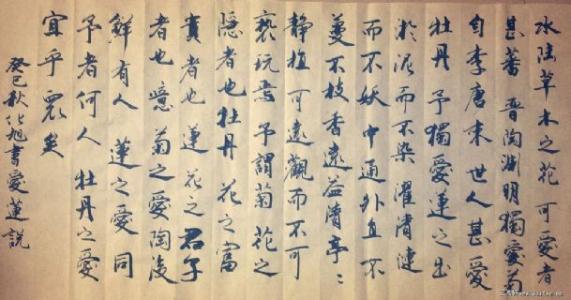 水陸草木之花可愛者
甚蕃晉陶淵明獨愛菊
自李唐來世人甚愛
牡丹予獨愛蓮之出
淤泥而不染濯清漣
而不妖中通外直不
蔓不枝香遠益清亭〻
靜植可遠觀而不可
褻玩焉予謂菊花之
隱者也牡丹花之富
貴者也蓮花之君子
者也噫菊之愛陶後
鮮有人蓮之愛同
予者何人牡丹之愛
宜乎眾矣
癸巳秋旭書愛蓮說